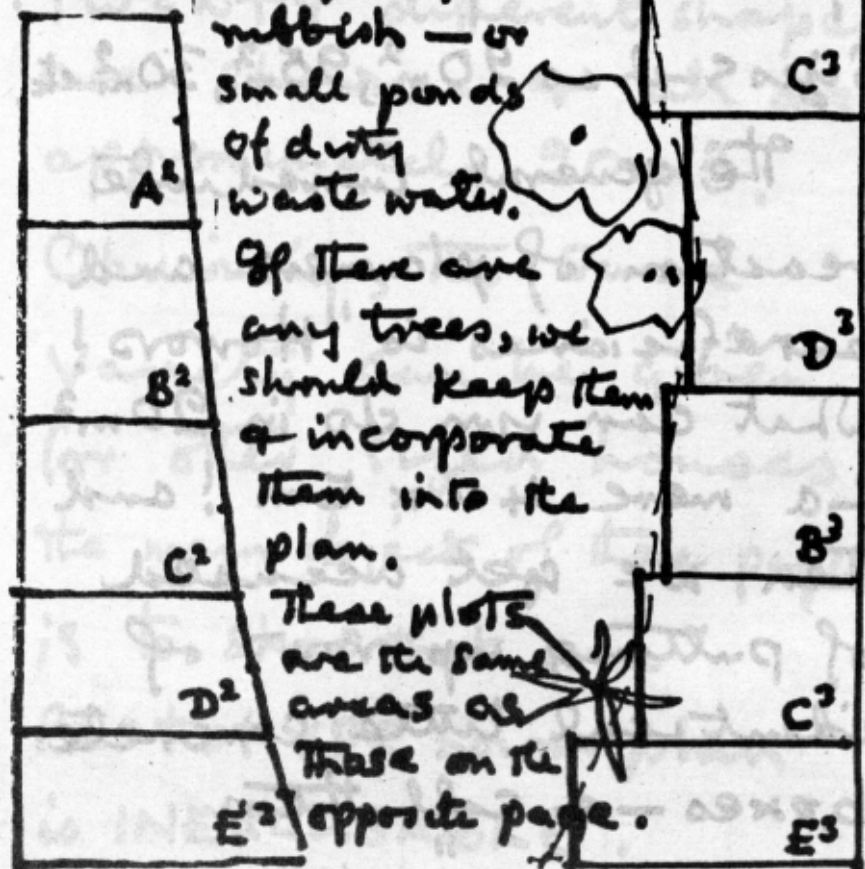 rubbish — or
small ponds
of dirty
waste water.
If there are
any trees, we
should keep them
& incorporate
them into the
plan.
These plots
are the same
areas as
those on the
opposite page.
A²
B²
C²
D²
E²
C³
D³
B³
C³
E³